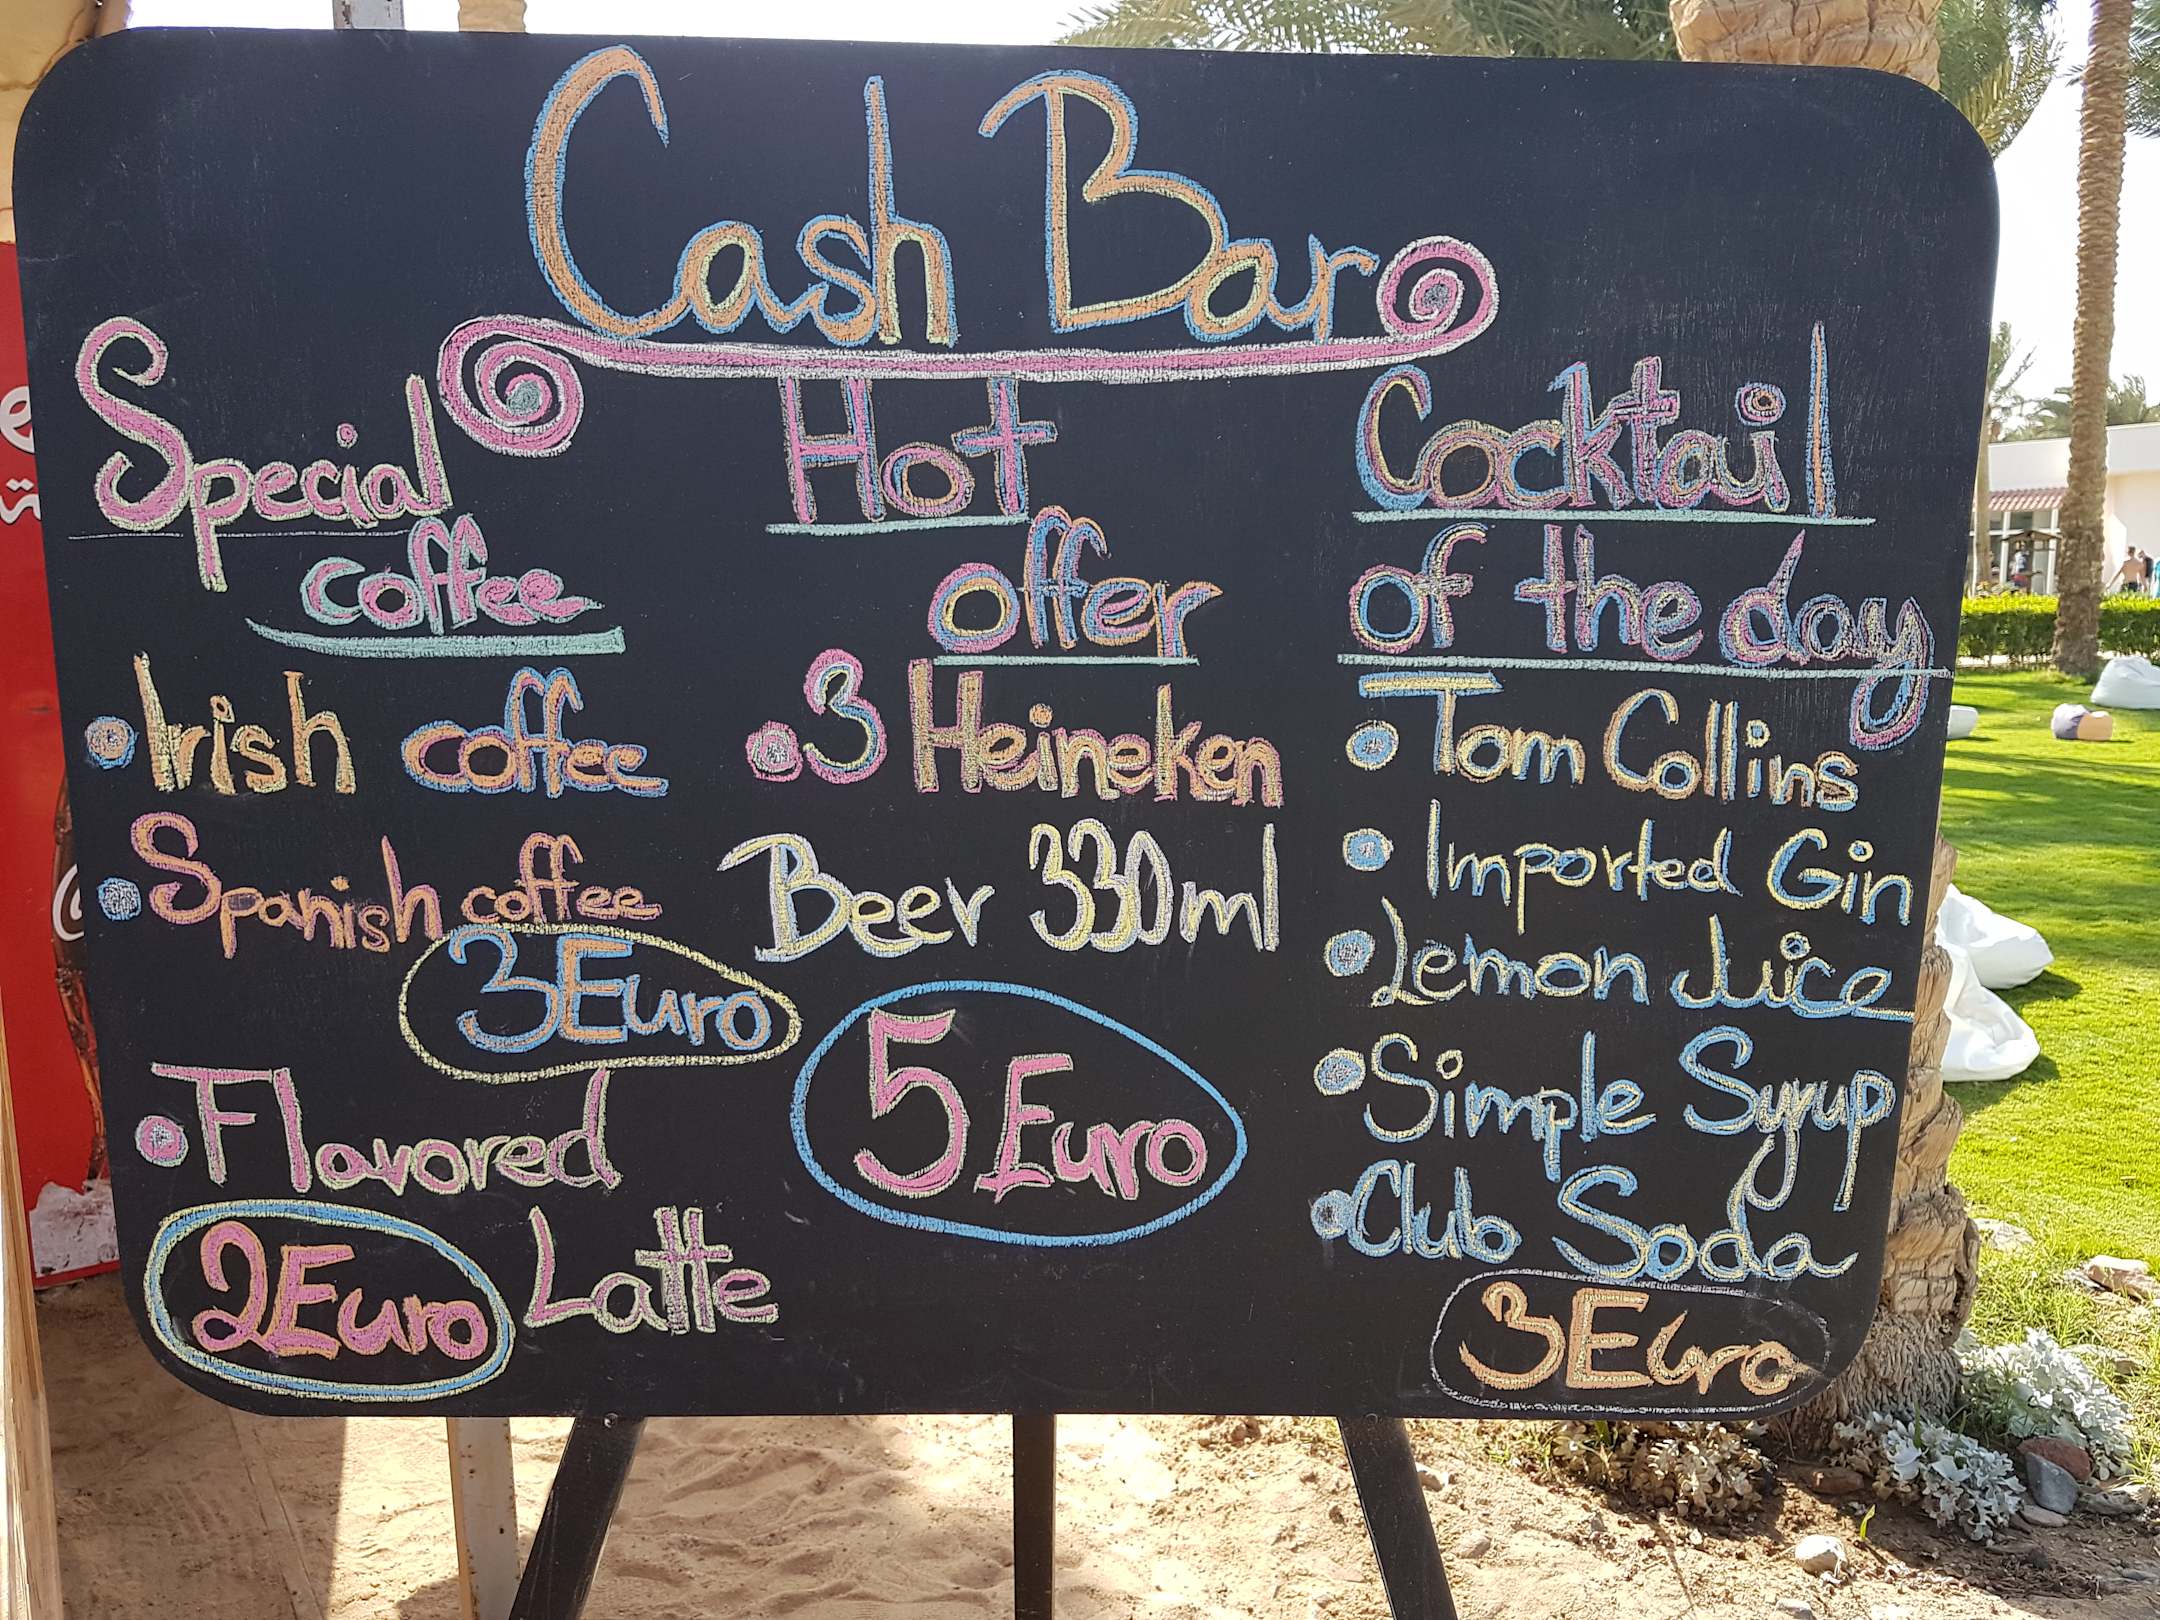 Cash Bar
Special
coffee
• Irish coffee
• Spanish coffee
3 Euro
• Flavored
2 Euro Latte
Hot
offer
• 3 Heineken
Beer 330ml
5 Euro
Cocktail
of the day
• Tom Collins
• Imported Gin
• Lemon Juice
• Simple Syrup
• Club Soda
3 Euro